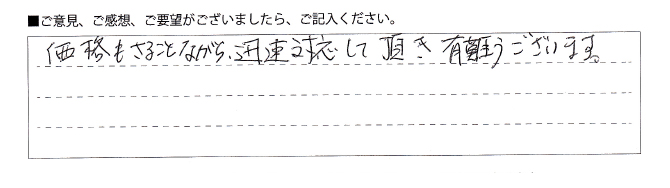 ■ご意見、ご感想、ご要望がございましたら、ご記入ください。
価格もさることながら、迅速対応して頂き有難うございます。